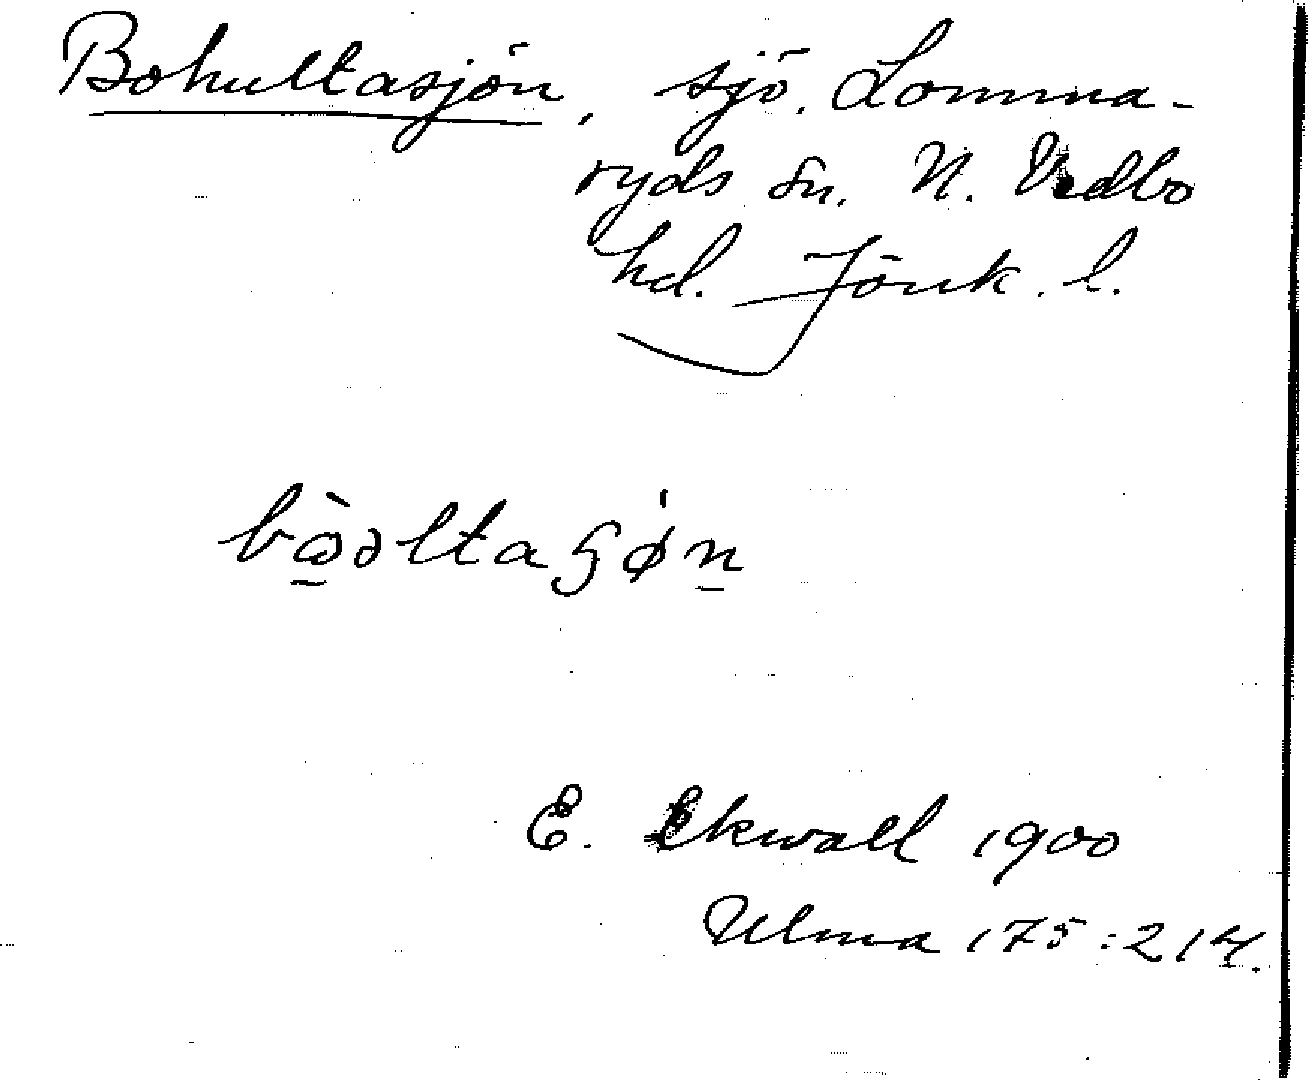 Bohultasjön, sjö. Lomma-
ryds sn. N. Vedbo
hd. Jönk. l.
E. Ekwall 1900
Ulma 175:214.